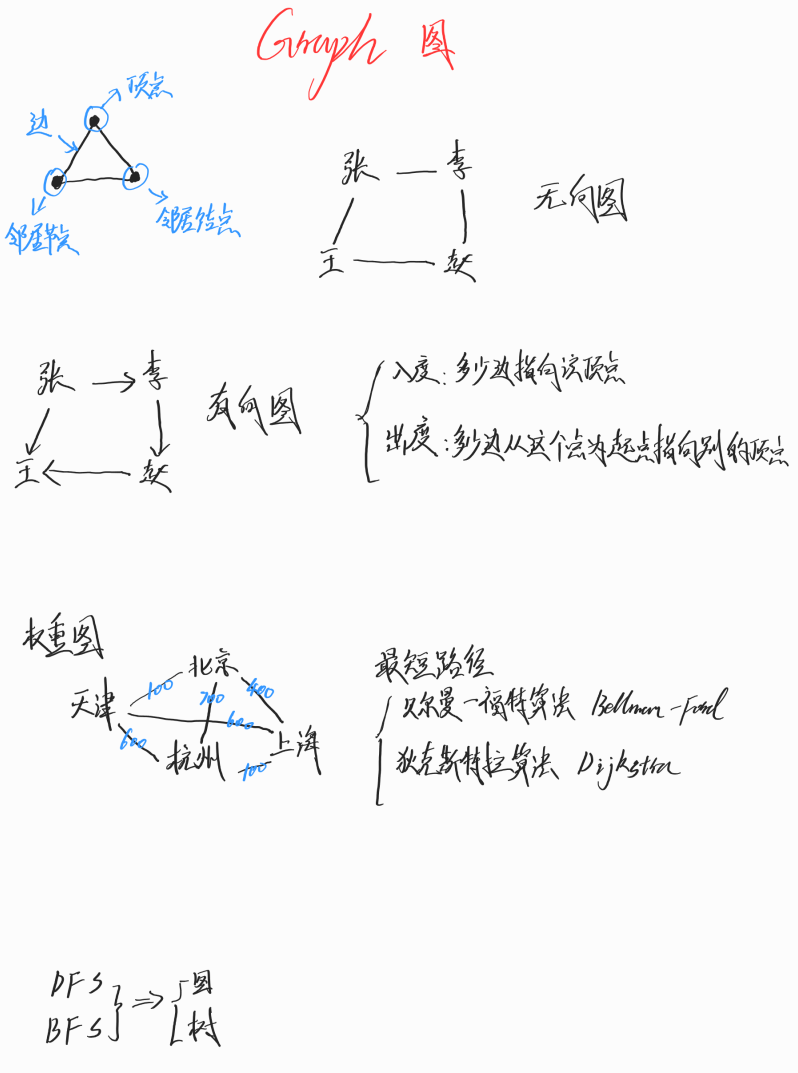 Graph 图
顶点
边
邻居结点
邻居结点
张 李
王 赵
无向图
张 李
王 赵
有向图
入度：多少边指向该顶点
出度：多少边从这个点为起点指向别的顶点
权重图
北京
天津
杭州
上海
100
700
400
600
600
100
最短路径
贝尔曼-福特算法 Bellman-Ford
狄克斯特拉算法 Dijkstra
DFS
BFS
=> 图
树